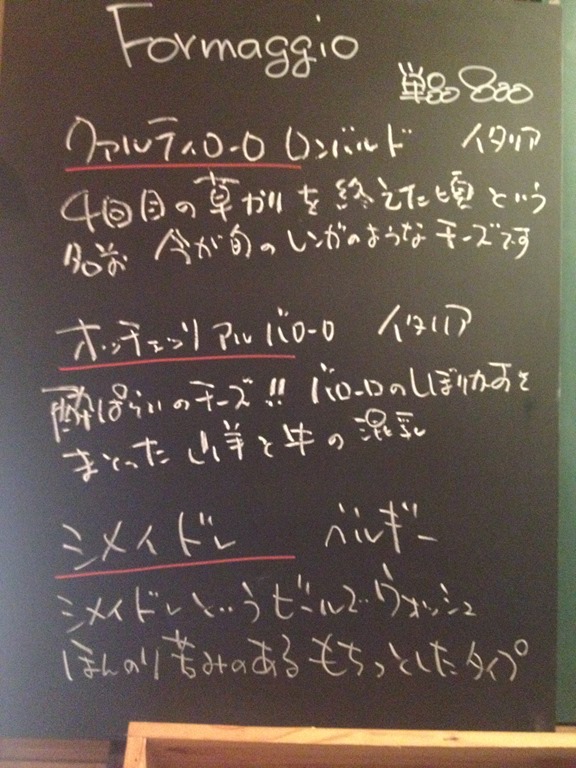 Formaggio
単品 800
クアルティローロ ロンバルド イタリア
4回目の草かりを終えた頃という
名前 今が旬のレンガのようなチーズです
オッチェッリ アル バローロ イタリア
酔っぱらいのチーズ!! バローロのしぼりカスを
まとった 山羊と牛の混乳
シメイドレ ベルギー
シメイドレというビールでウォッシュ
ほんのり苦みのあるもちっとしたタイプ